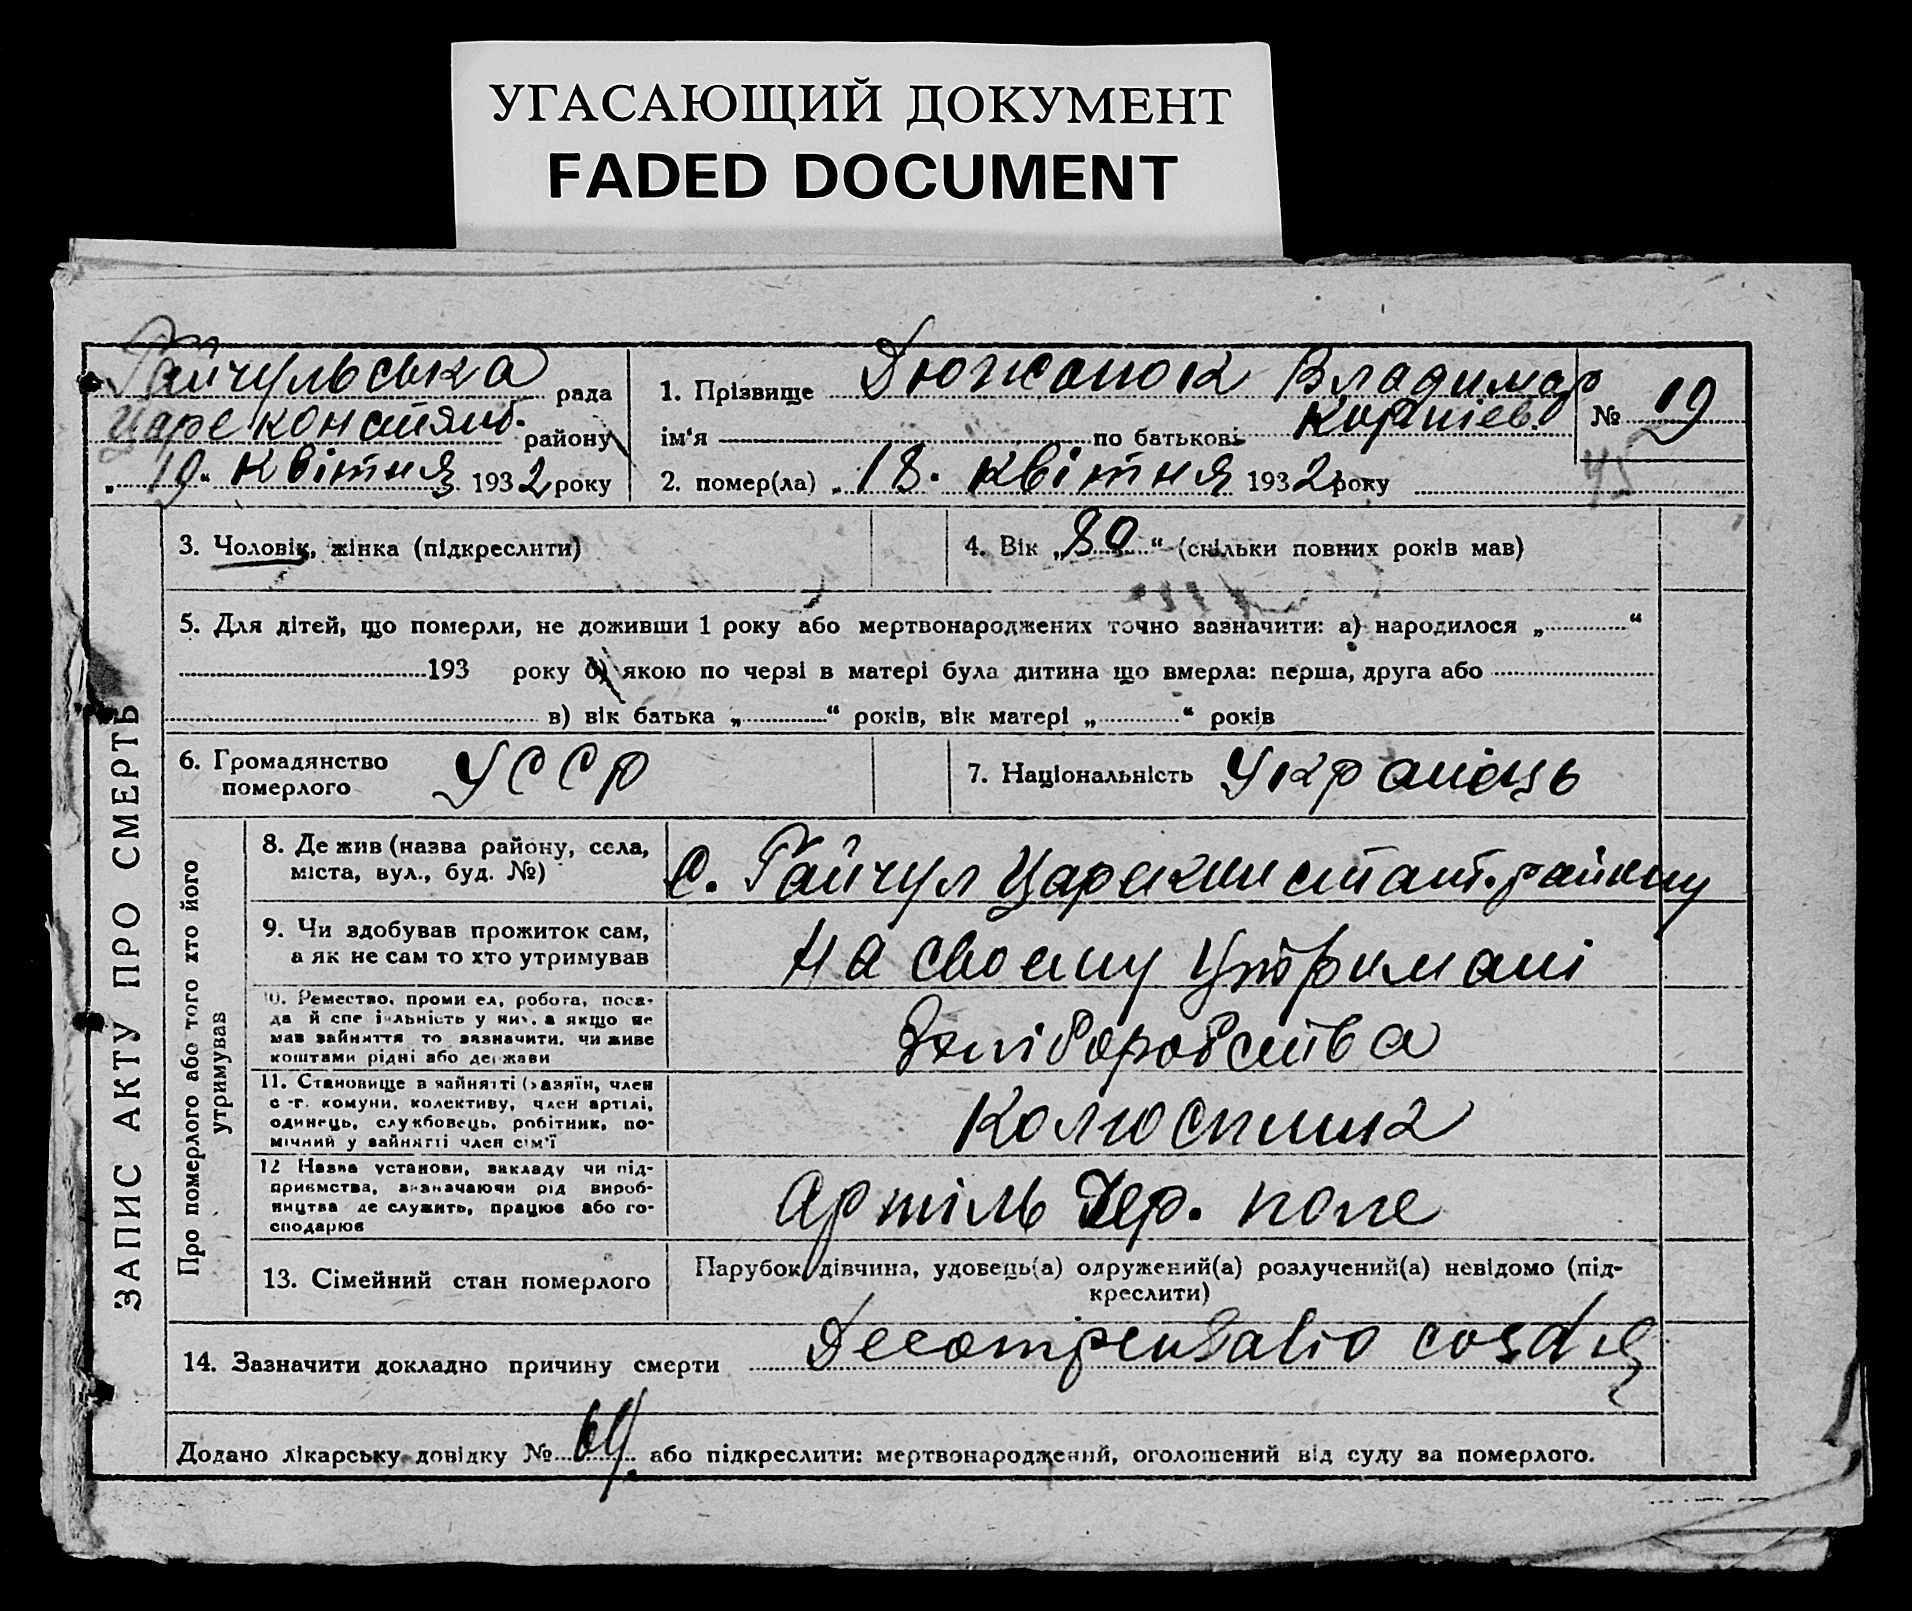 УГАСАЮЩИЙ ДОКУМЕНТ
FADED DOCUMENT
Гайчульська рада
Царе констянт. району
„19“ квітня 1932 року
1. Прізвище Дюжанок Владимир
ім'я по батькові Корніев.
2. помер(ла) „18. квітня 1932 року
№ 19
45
ЗАПИС АКТУ ПРО СМЕРТЬ
3. Чоловік, жінка (підкреслити)
4. Вік „80“ (скільки повних років мав)
5. Для дітей, що померли, не доживши 1 року або мертвонароджених точно зазначити: а) народилося „ “
193 року б) якою по черзі в матері була дитина що вмерла: перша, друга або
в) вік батька „ “ років, вік матері „ “ років
6. Громадянство
померлого
УССР
7. Національність Украінець
Про померлого або того хто його
утримував
8. Де жив (назва району, села,
міста, вул., буд. №)
С. Гайчул Цареконстант. району
9. Чи здобував прожиток сам,
а як не сам то хто утримував
На своему утримані
10. Ремество, промисел, робота, поса-
да й спеціяльність у них, а якщо не
мав зайняття то зазначити, чи живе
коштами рідні або держави
Хліборобства
11. Становище в зайнятті (хазяїн, член
с.-г. комуни, колективу, член артілі,
одинець, службовець, робітник, по-
мічний у зайнятті член сім'ї
Колгоспник
12 Назва установи, закладу чи під-
приємства, визначаючи рід вироб-
ництва де служить, працює або го-
сподарює
Артіль Чер. поле
13. Сімейний стан померлого
Парубок, дівчина, удовець(а) одружений(а) розлучений(а) невідомо (під-
креслити)
14. Зазначити докладно причину смерти Decompensatio cordis
Додано лікарську довідку № 64 або підкреслити: мертвонароджений, оголошений від суду за померлого.